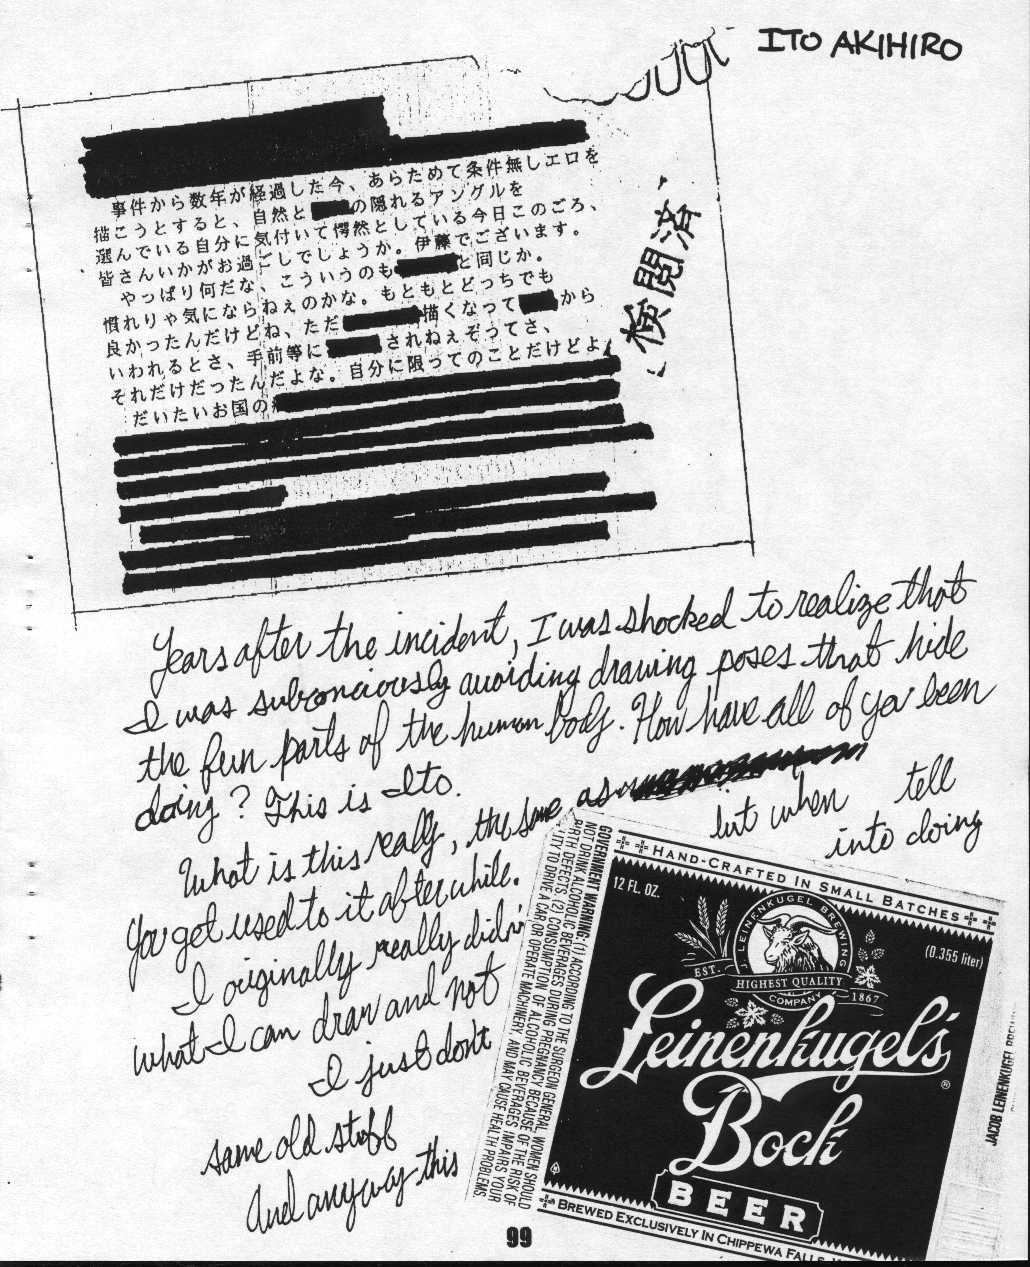 ITO AKIHIRO
事件から数年が経過した今、あらためて条件無しエロを
描こうとすると、自然と の隠れるアングルを
選んでいる自分に気付いて愕然としている今日このごろ、
皆さんいかがお過ごしでしょうか。伊藤でございます。
やっぱり何だな、こういうのも と同じか。
慣れりゃ気にならねぇのかな。もともとどっちでも
良かったんだけどね、ただ 描くなって から
いわれるとさ、手前等に されねぇぞってさ、
それだけだったんだよな。自分に限ってのことだけどよ
だいたいお国の
検閲済
Years after the incident, I was shocked to realize that
I was subconciously avoiding drawing poses that hide
the fun parts of the human body. How have all of ya been
doing? This is Ito.
What is this really, the same as
You get used to it after while.
but when tell
into doing
I originally really didn'
what I can draw and not
I just don't
same old stuff
And anyway this
GOVERNMENT WARNING: (1) ACCORDING TO THE SURGEON GENERAL, WOMEN SHOULD
NOT DRINK ALCOHOLIC BEVERAGES DURING PREGNANCY BECAUSE OF THE RISK OF
BIRTH DEFECTS. (2) CONSUMPTION OF ALCOHOLIC BEVERAGES IMPAIRS YOUR
ABILITY TO DRIVE A CAR OR OPERATE MACHINERY, AND MAY CAUSE HEALTH PROBLEMS.
HAND-CRAFTED IN SMALL BATCHES
12 FL. OZ.
(0.355 liter)
LEINENKUGEL BREWING
COMPANY
EST.
HIGHEST QUALITY
1867
Leinenkugel's
®
Bock
BEER
BREWED EXCLUSIVELY IN CHIPPEWA FALLS,
JACOB LEINENKUGEL
99